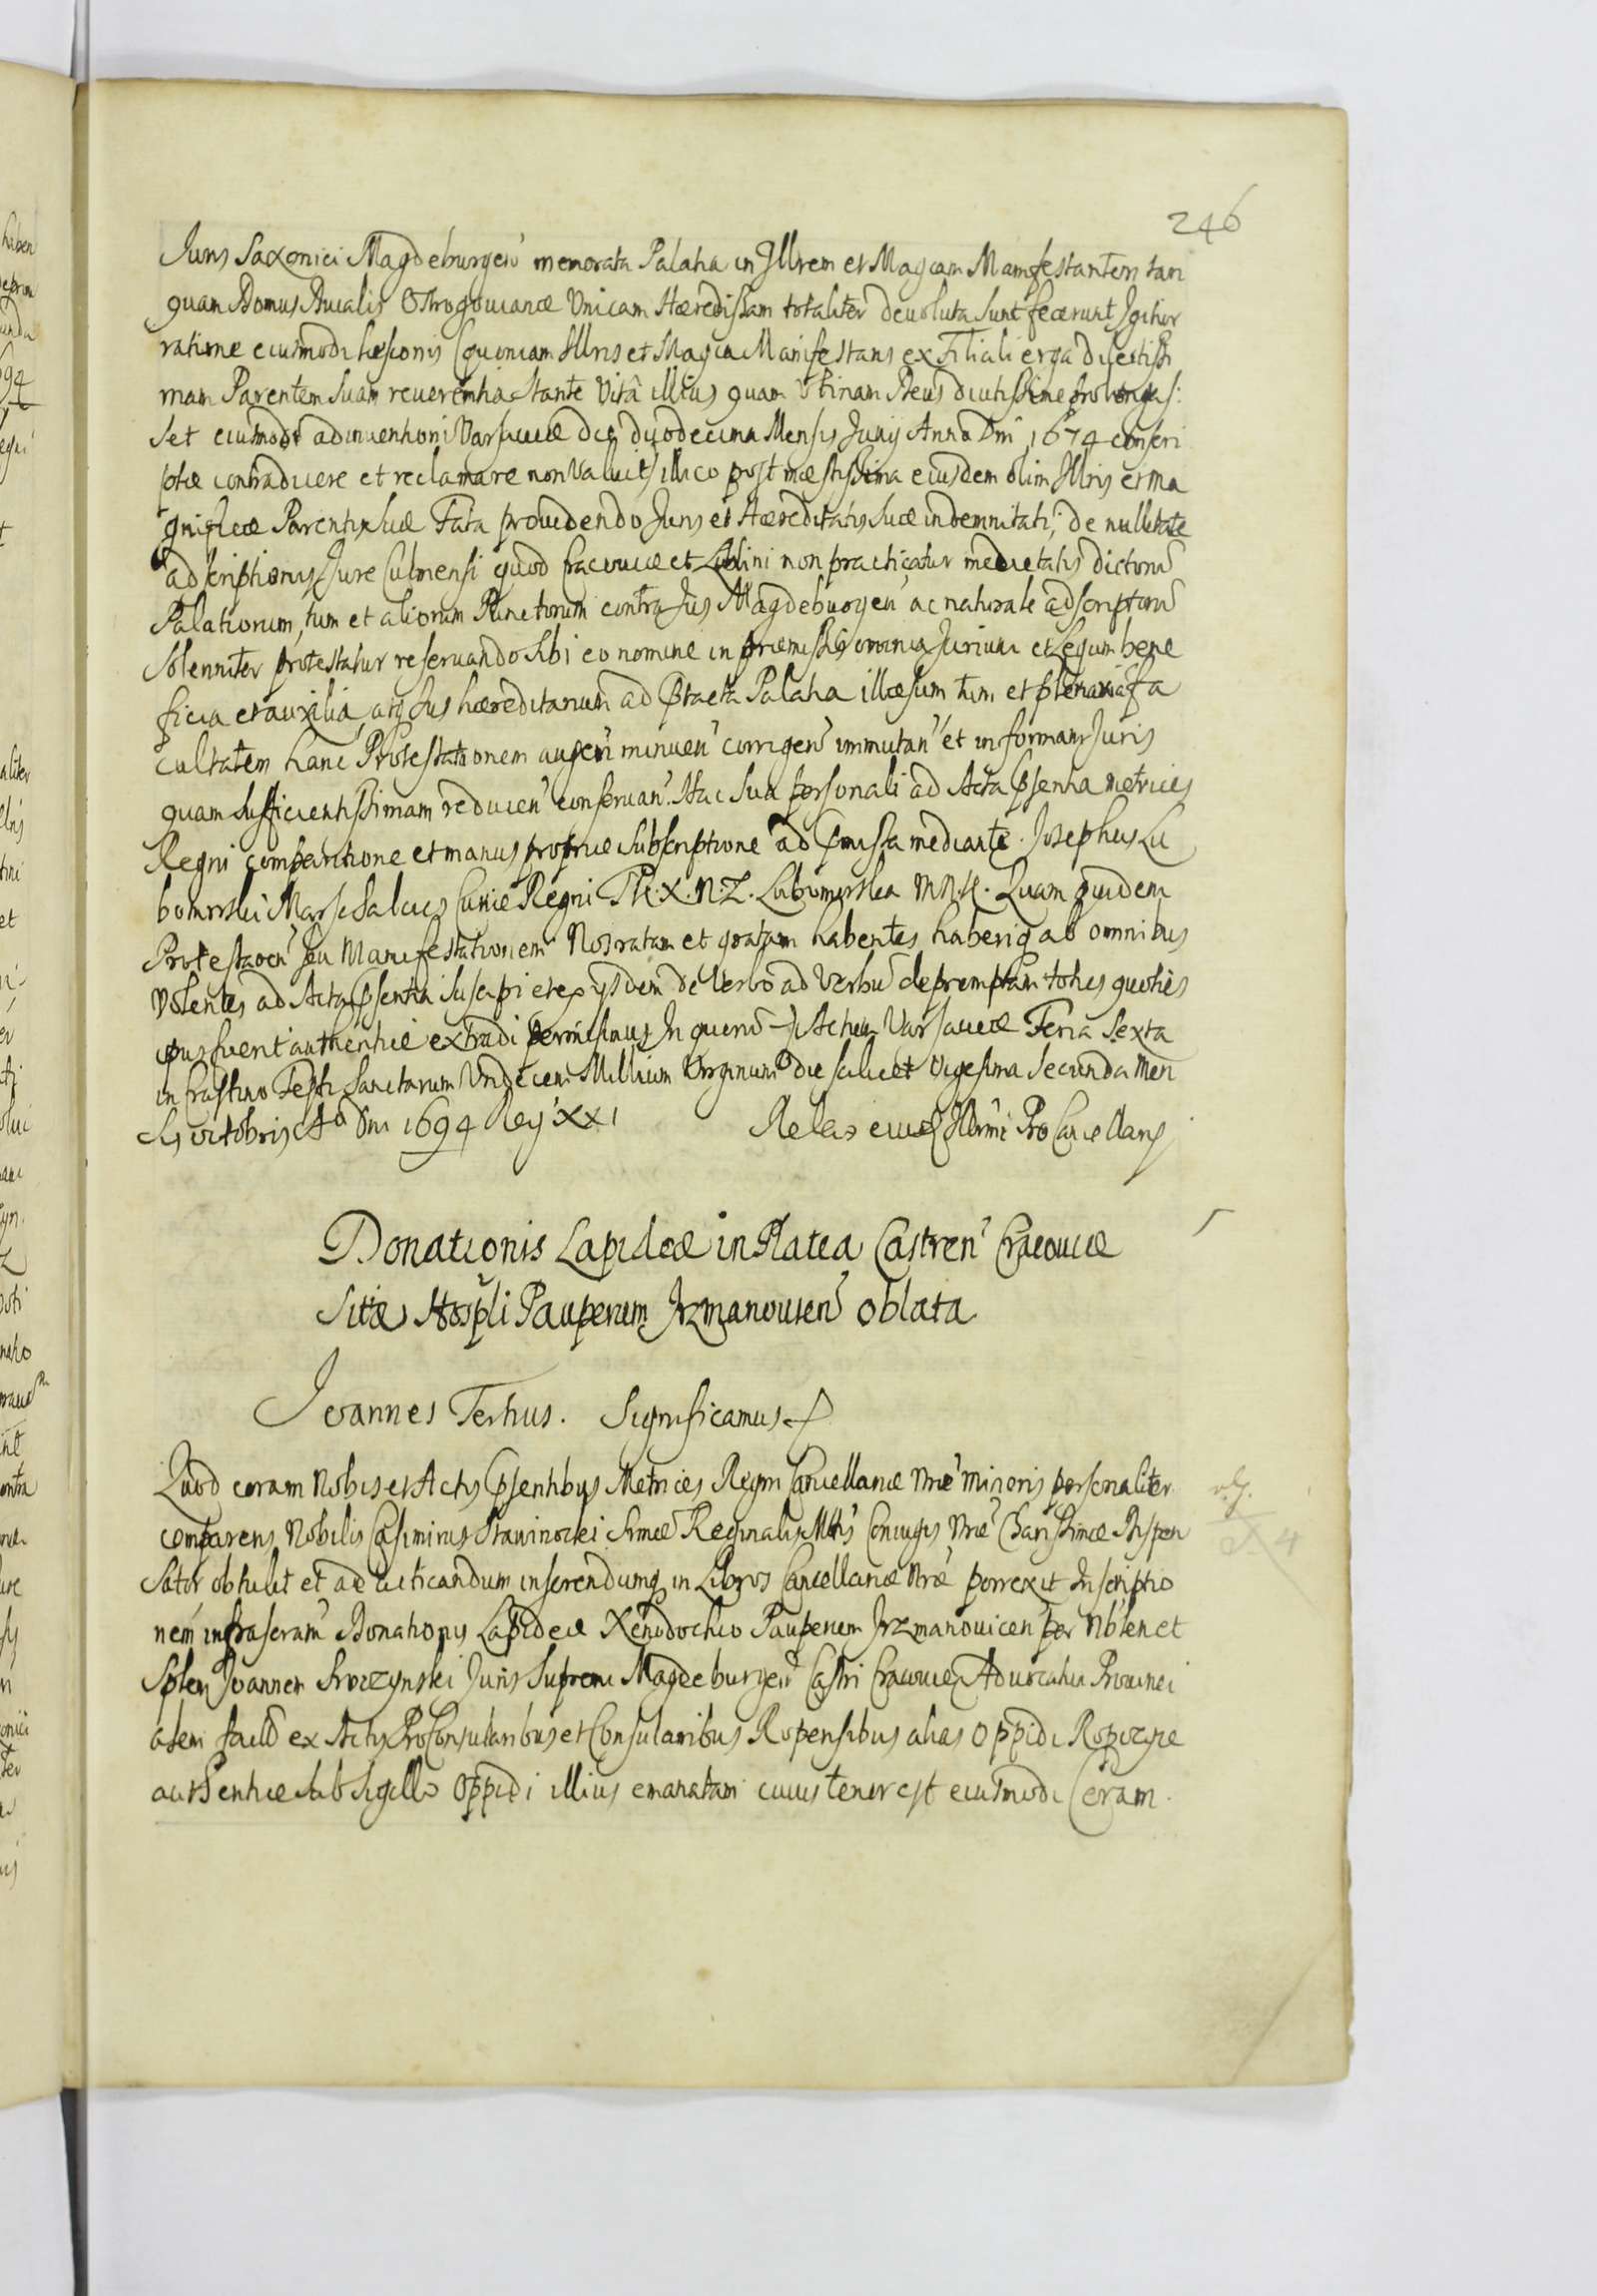 246
Juris Saxonici Magdeburgen̄ memorata Palatia in Jllrem et Magcam Manifestantem tan
quam Domus Ducalis Ostrogovianæ Vnicam Hæredissam totaliter devoluta sunt fecerunt Igitur
ratione eiusmodi læsionis (quoniam Jllris et Magca Manifestans ex Filiali erga dilectissi
mam Parentem suam reverentia stante Vitâ illius quam Vtinam Deus diutissime prolongas:
set eiusmodi adinventioni Varsaviæ die duodecima Mensis Junij Anno Dni 1674 conscri
ptæ contradicere et reclamare non Valuit) illico post mæstissima eiusdem olim Jllris et Ma
gnificæ Parentis suæ Fata providendo Juri et Hæreditatis suæ indemnitati, de nullitate
adscriptionis Jure Culmensi quod Cracoviæ et Lublini non practicatur medietatis dictorū
Palatiorum, tum et aliorum Punctorum contra Jus Magdeburgen̄ ac naturale adscriptorū
Solenniter protestatur reservando sibi eo nomine in præmissis omnia Jurium et Legum bene
ficia et auxilia, atq Jus hæreditarium ad Ptacta Palatia illæsum tum et plenariā fa
cultatem hanc Protestationem augen̄ minuen̄ corrigen̄ immutan̄ et in formam Juris
quam sufficientissimam reducen̄ conservan̄. Hac sua personali ad Acta Psentia Metrices
Regni comparitione et manus propriæ subscriptione ad Pmissa mediante. Josephus Lu
bomirski Marschalcus Curiæ Regni Th. X. N. Z. Lubomirska M N. K. Quam quidem
Protestaoen̄ seu Manifestationem Nos ratam et gratam habentes haberiq ab omnibus
Volentes ad Acta Psentia suscipi et ex ijsdem de Verbo ad Verbū depromptam toties quoties
opus fuerit authentice extradi permisimus In quorū Actum Varsaviæ Feria Sexta
in Crastino Festi Sanctarum Vndecim Millium Virginum die scilicet Vigesima Secunda Men
sis octobris Aō Dni 1694 Reg̃ XXI Relao eiusd Jllrmi ProCancellarij
Donationis Lapideæ in Platea Castren̄ Cracoviæ
Sitæ Hospli Pauperum Irzmanovicen̄ oblata
Joannes Tertius. Significamus
Quod coram Nobis et Actis Psentibus Metrices Regni Cancellariæ Nræ Minoris personaliter
comparens Nobilis Casimirus Stawinocki Srmæ Reginalis Mttis Coniugis Nræ Charissimæ Dispen
sator obtulit et ad acticandum inserendumq in Libros Cancellariæ Nræ porrexit Inscriptio
nem infrascram Donationis Lapideæ Xenodochio Pauperum Irzmanovicen̄ per Nblem et
Splem Joannem Skoczynski Juris Supremi Magdeburgen̄ Castri Cracovien Advocatum Provinci
alem factā ex Actis ProConsularibus et Consularibus Ropensibus alias Oppidi Ropczyce
authentice sub sigillo Oppidi illius emanatam cuius tenor est eiusmodi Coram.